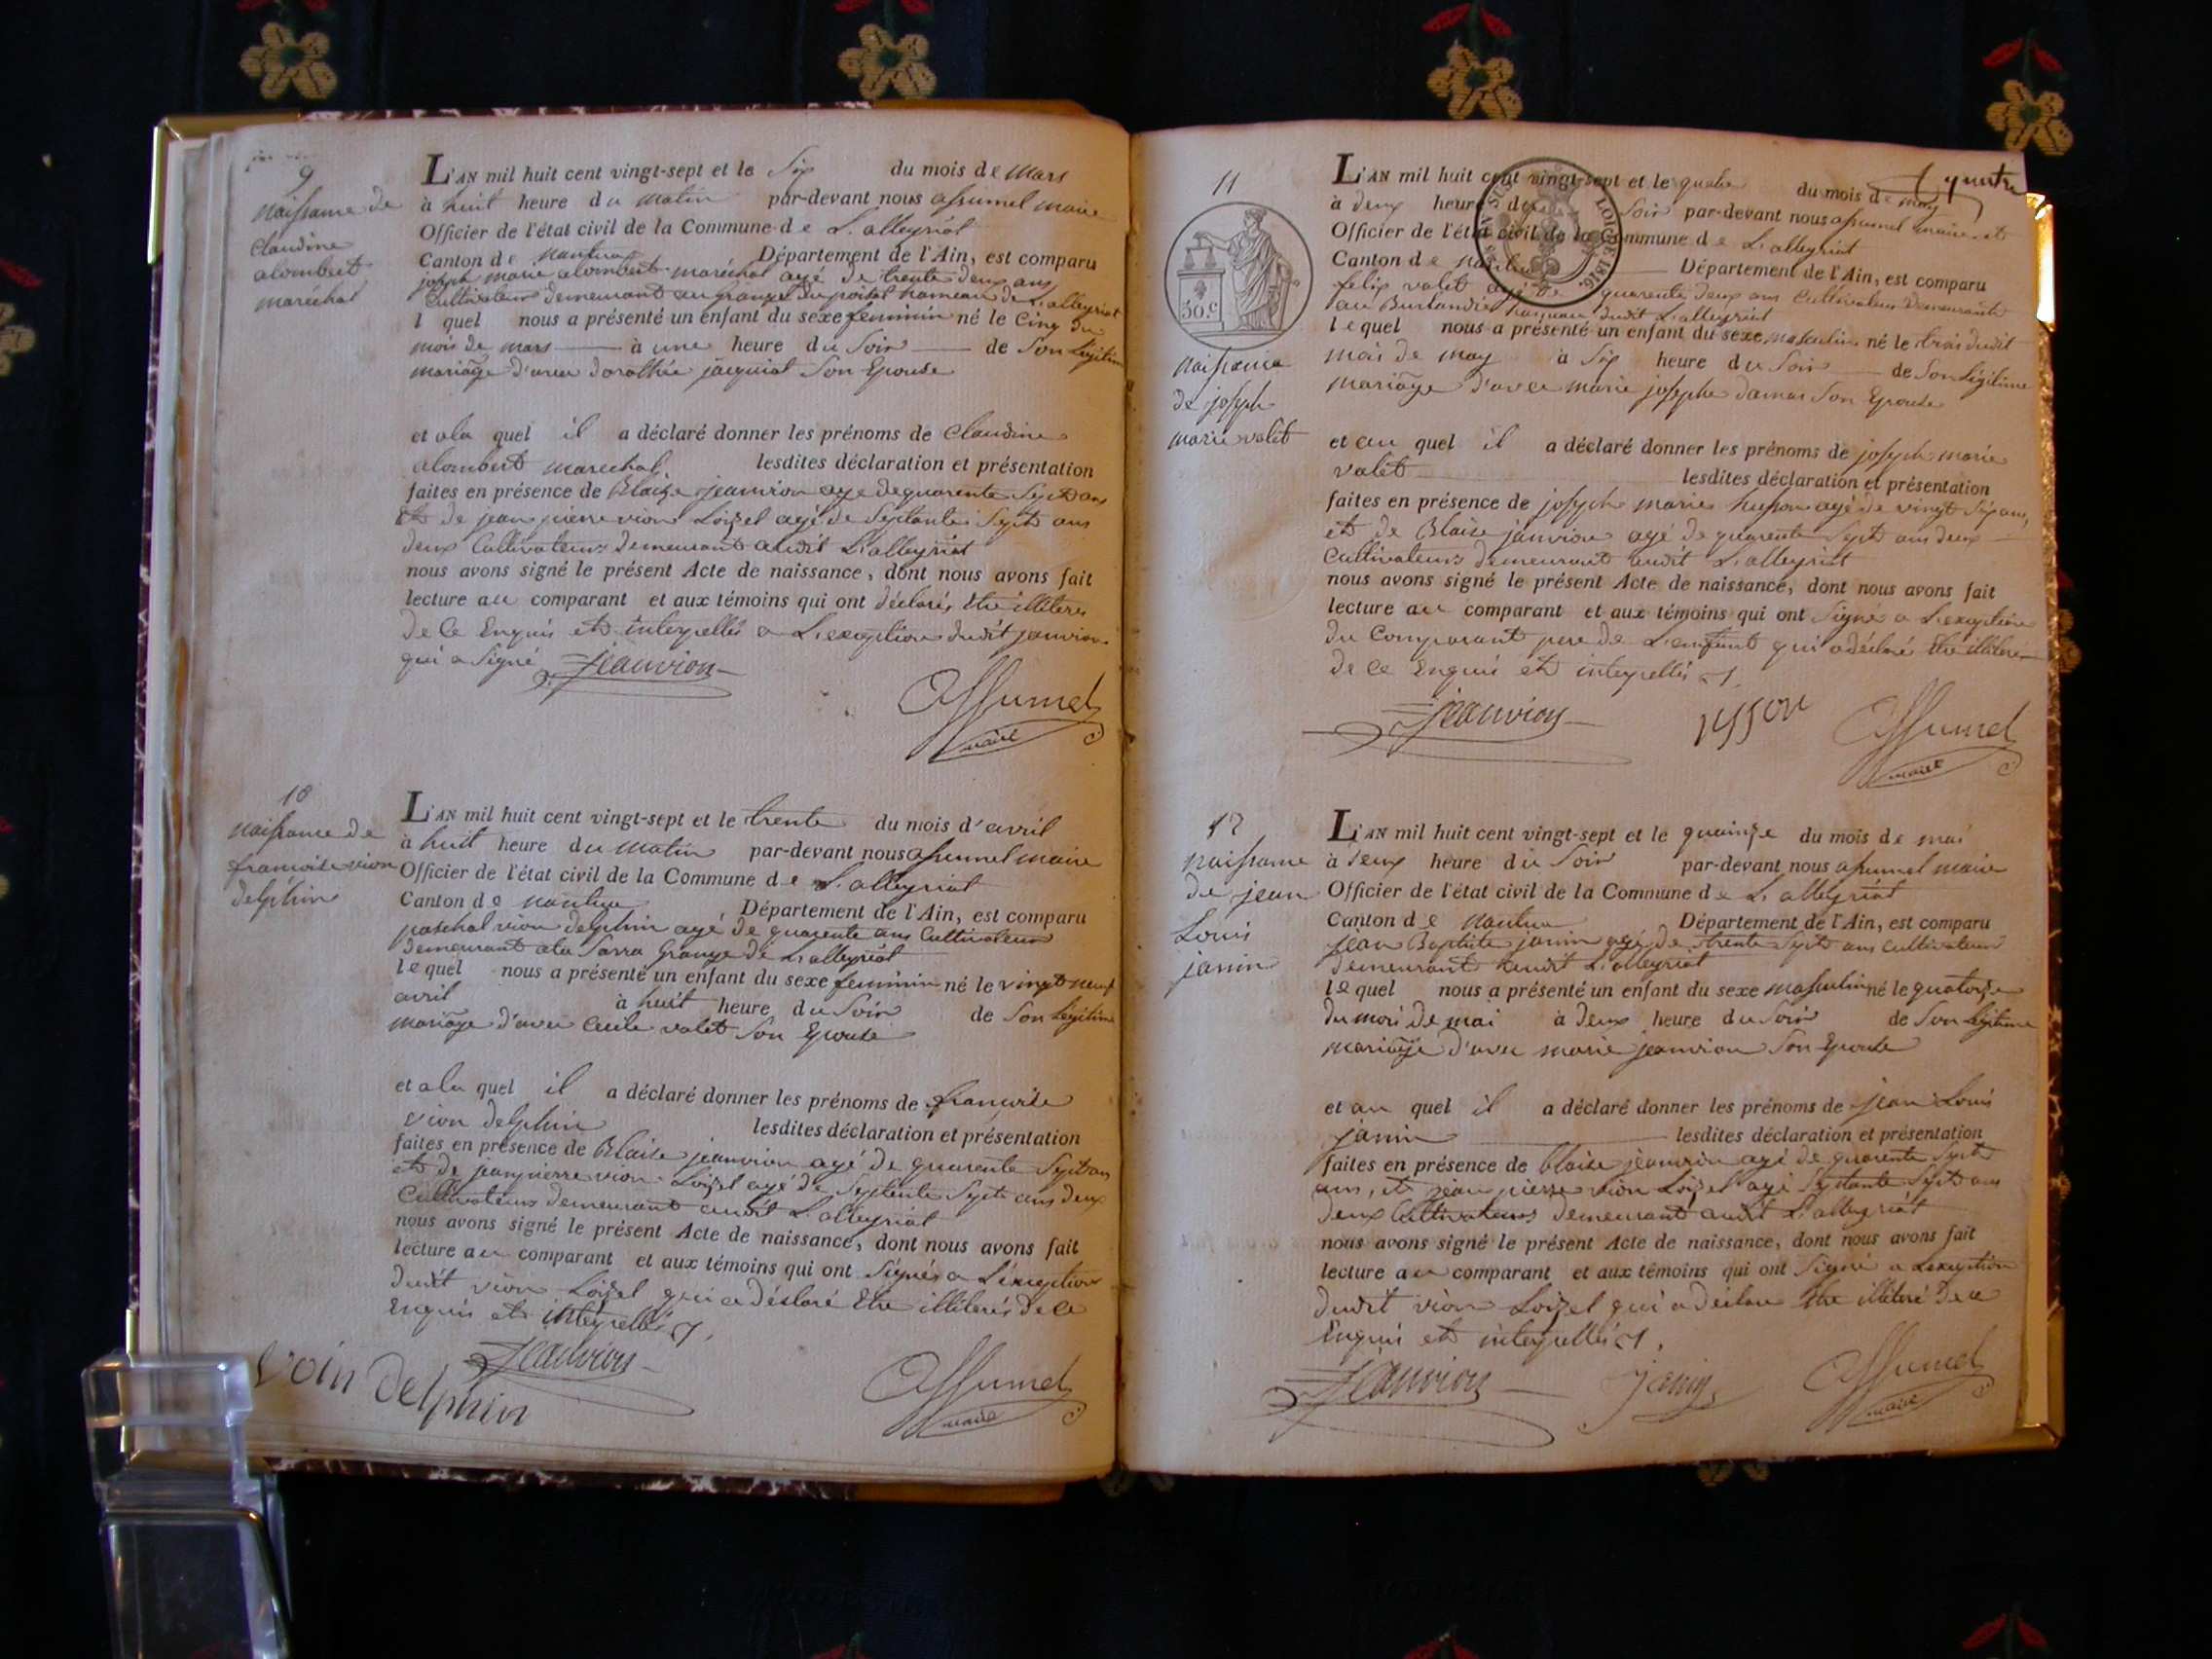 9
naissance de
Claudine
alombert
maréchal
L'AN mil huit cent vingt-sept et le Six du mois de Mars
à huit heure du matin par-devant nous assumel maire
Officier de l'état civil de la Commune de L'alleyriat
Canton de nantua Département de l'Ain, est comparu
joseph marie alombert maréchal agé de trente deux ans
Cultivateur demeurant au granges du poizat hameau de L'alleyriat
l quel nous a présenté un enfant du sexe feminin né le Cinq du
mois de mars à une heure du Soir de Son Légitime
mariage d'avec dorothée jacquiot Son Epouse
et ala quel il a déclaré donner les prénoms de Claudine
alombert marechal lesdites déclaration et présentation
faites en présence de Blaise jeanvion agé de quarente Sept ans
Et de jean pierre vion Loizel agé de Septante Sept ans
deux Cultivateurs demeurant audit L'alleyriat
nous avons signé le présent Acte de naissance, dont nous avons fait
lecture au comparant et aux témoins qui ont déclarés être illiteres
de Ce Enquis et interpellés a L'exception dudit janvion
qui a Signé Jeanvion
Assumel
maire
10
naissance de
francoise vion
delphin
L'AN mil huit cent vingt-sept et le trente du mois d'avril
à huit heure du matin par-devant nous assumel maire
Officier de l'état civil de la Commune de L'alleyriat
Canton de nantua Département de l'Ain, est comparu
paschal vion delphin agé de quarente ans Cultivateur
demeurant ala Sarra Grange de L'alleyriat
lequel nous a présenté un enfant du sexe feminin né le vingt neuf
avril à huit heure du Soir de Son Légitime
mariage d'avec Cecile valet Son Epouse
et ala quel il a déclaré donner les prénoms de francoise
vion delphin lesdites déclaration et présentation
faites en présence de Blaise jeanvion agé de quarente Sept ans
et de jean pierre vion Loizel agé de Septente Sept ans deux
Cultivateurs demeurant audit L'alleyriat
nous avons signé le présent Acte de naissance, dont nous avons fait
lecture au comparant et aux témoins qui ont Signés a L'exception
dudit vion Loizel qui a déclaré Etre illiterés de Ce
Enquis et interpellés
voin delphin Jeanvion Assumel
maire
11
30.c
naissance
de joseph
marie valet
L'AN mil huit cent vingt-sept et le quatre du mois de may
à deux heure du Soir par-devant nous assumel maire et
Officier de l'état civil de la Commune de L'alleyriat
Canton de nantua Département de l'Ain, est comparu
felix valet agé de quarente deux ans Cultivateur demeurante
au Burlandier hameau dudit L'alleyriat
lequel nous a présenté un enfant du sexe masculin né le trois dudit
mois de may à Six heure du Soir de Son Légitime
mariage d'avec marie josephe damas Son Epouse
et au quel il a déclaré donner les prénoms de joseph marie
valet lesdites déclaration et présentation
faites en présence de joseph marie husson agé de vingt Six ans,
et de Blaise janvion agé de quarente Sept ans deux
Cultivateurs demeurant audit L'alleyriat
nous avons signé le présent Acte de naissance, dont nous avons fait
lecture au comparant et aux témoins qui ont Signé a L'exception
du Comparant pere de L'enfant qui a déclaré Etre illitere
de Ce Enquis et interpellés
Jeanvion Assumel
maire
12
naissance
de jean
Louis
janin
L'AN mil huit cent vingt-sept et le quainze du mois de mai
à deux heure du Soir par-devant nous assumel maire
Officier de l'état civil de la Commune de L'alleyriat
Canton de nantua Département de l'Ain, est comparu
jean Baptiste janin agé de trente Sept ans cultivateur
demeurant audit L'alleyriat
lequel nous a présenté un enfant du sexe masculin né le quatorze
du mois de mai à deux heure du Soir de Son Légitime
mariage d'avec marie jeanvion Son Epouse
et au quel il a déclaré donner les prénoms de jean Louis
janin lesdites déclaration et présentation
faites en présence de blaise jeanvion agé de quarente Sept
ans, et jean pierre vion Loizel agé Septante Sept ans
deux Cultivateurs demeurant audit L'alleyriat
nous avons signé le présent Acte de naissance, dont nous avons fait
lecture au comparant et aux témoins qui ont Signé a Lexception
dudit vion Loizel qui a déclare être illiteré de ce
Enquis et interpellés
Jeanvion Janin Assumel
maire